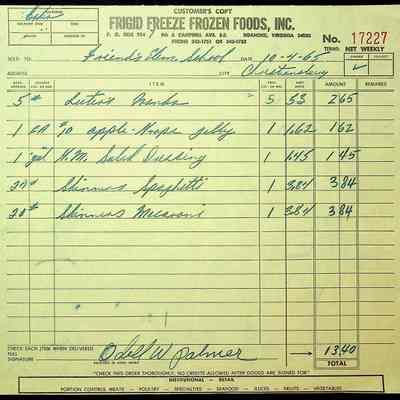 CUSTOMER'S COPY
FRIGID FREEZE FROZEN FOODS, INC.
P. O. BOX 954 906 CAMPBELL AVE. S.E. ROANOKE, VIRGINIA
PHONE
No. 17227
TERMS: NET WEEKLY
SOLD TO Friend's Elem School DATE 10-4-65
ADDRESS CITY
ITEM AMOUNT REMARKS
5 # 5 53 2.65
1 #10 apple 1 1.62 1 62
1 gal K.M. Salad Dressing 1 1.45 1 45
20# Skinners Spaghetti 1 3.84 3 84
20# Skinners Macaroni 1 3.84 3 84
CHECK EACH ITEM WHEN DELIVERED
SIGNATURE Odell W Palmer 13.40
TOTAL
"CHECK THIS ORDER THOROUGHLY. NO CREDITS ALLOWED AFTER GOODS ARE SIGNED FOR"
INSTITUTIONAL - RETAIL
PORTION CONTROL MEATS - POULTRY - SPECIALTIES - SEAFOOD - JUICES - FRUITS - VEGETABLES